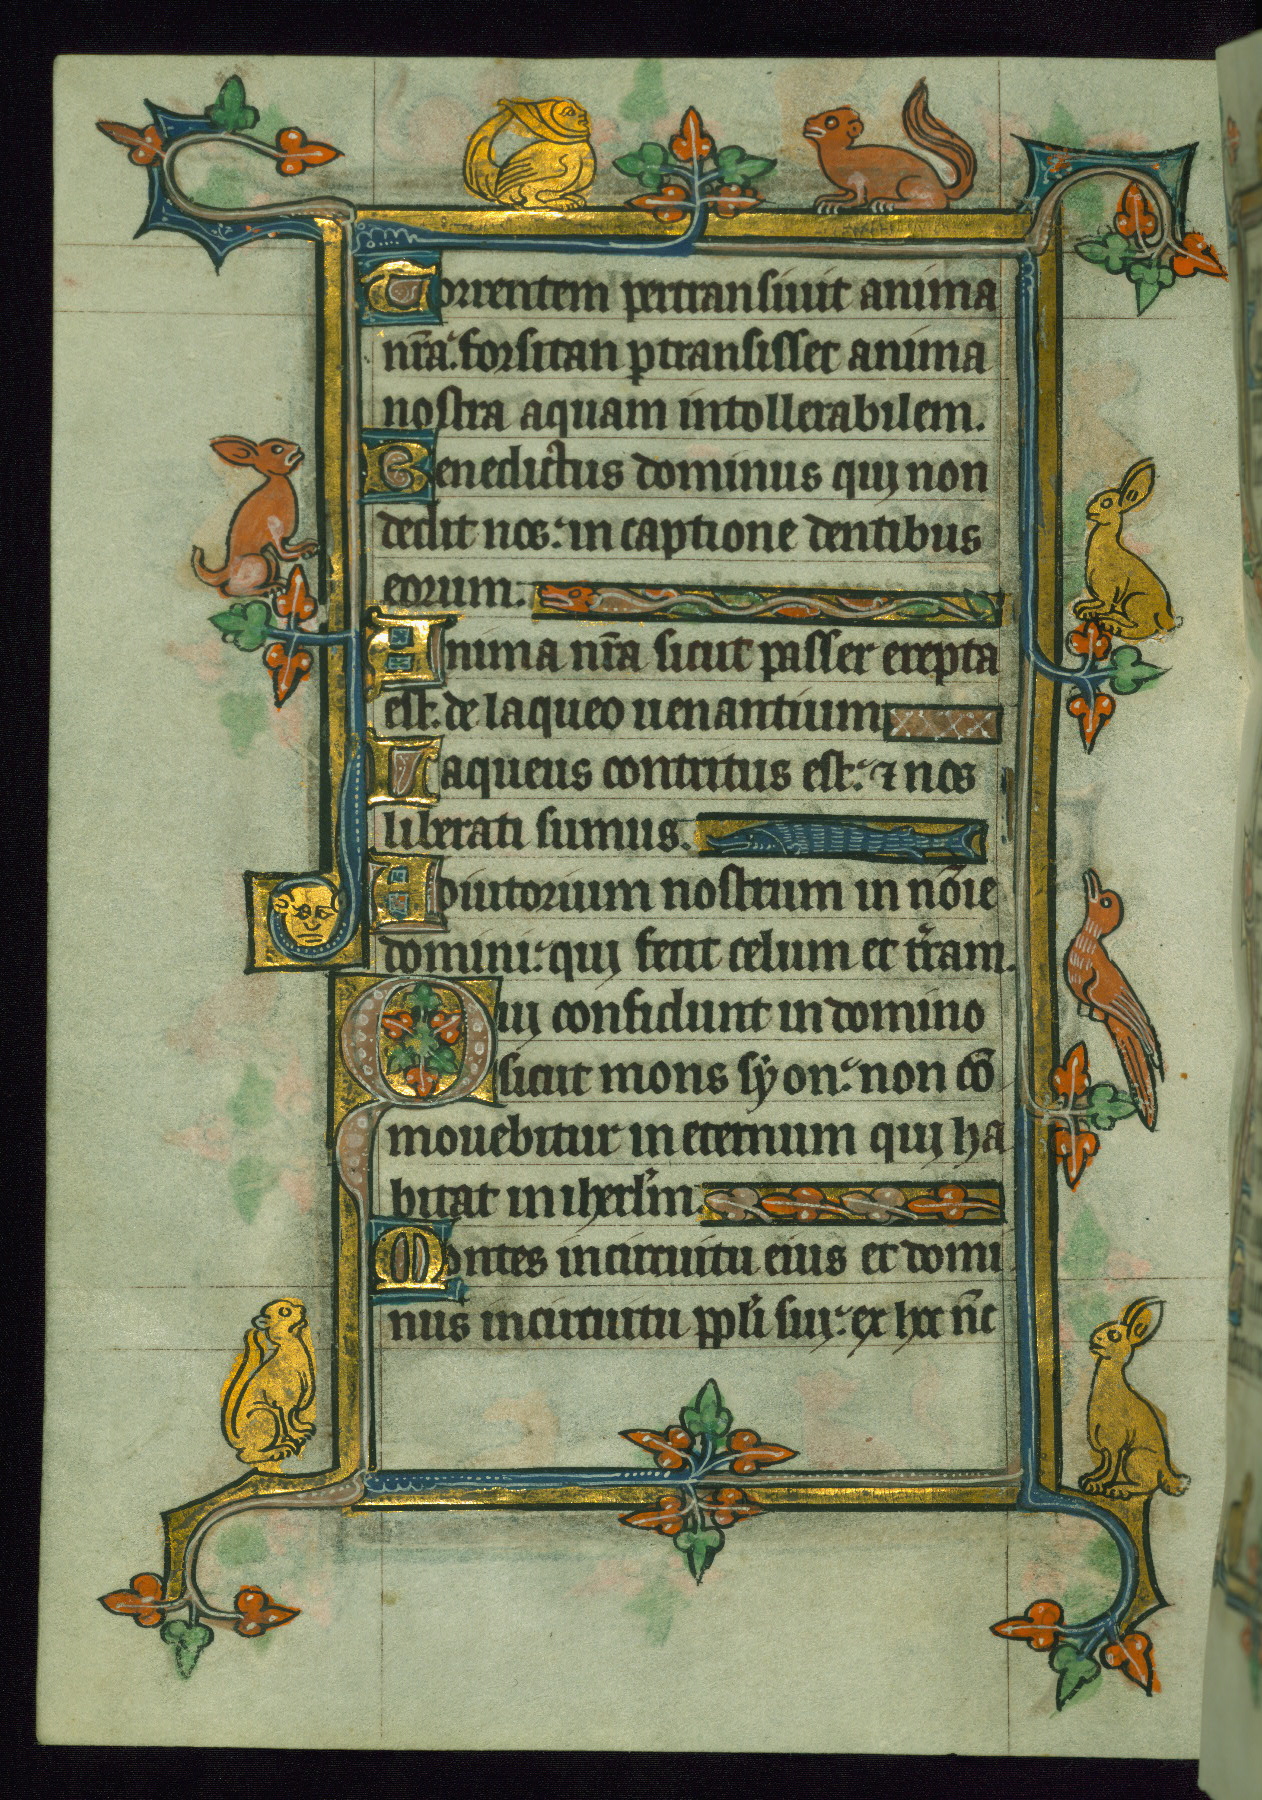 Torrentem pertransiuit anima
nr̄a: forsitan ꝑtransisset anima
nostra aquam intollerabilem.
Benedictus dominus qui non
dedit nos: in captione dentibus
eorum.
Anima nr̄a sicut passer erepta
est: de laqueo uenantium
Laqueus contritus est: ⁊ nos
liberati sumus.
Adiutorium nostrum in nōie
domini: qui fecit celum et tr̄am.
Qui confidunt in domino
sicut mons syon: non cō
mouebitur in eternum qui ha
bitat in iherl̄m.
Montes in circuitu eius et domi
nus in circuitu ppl̄i sui: ex hoc nc̄